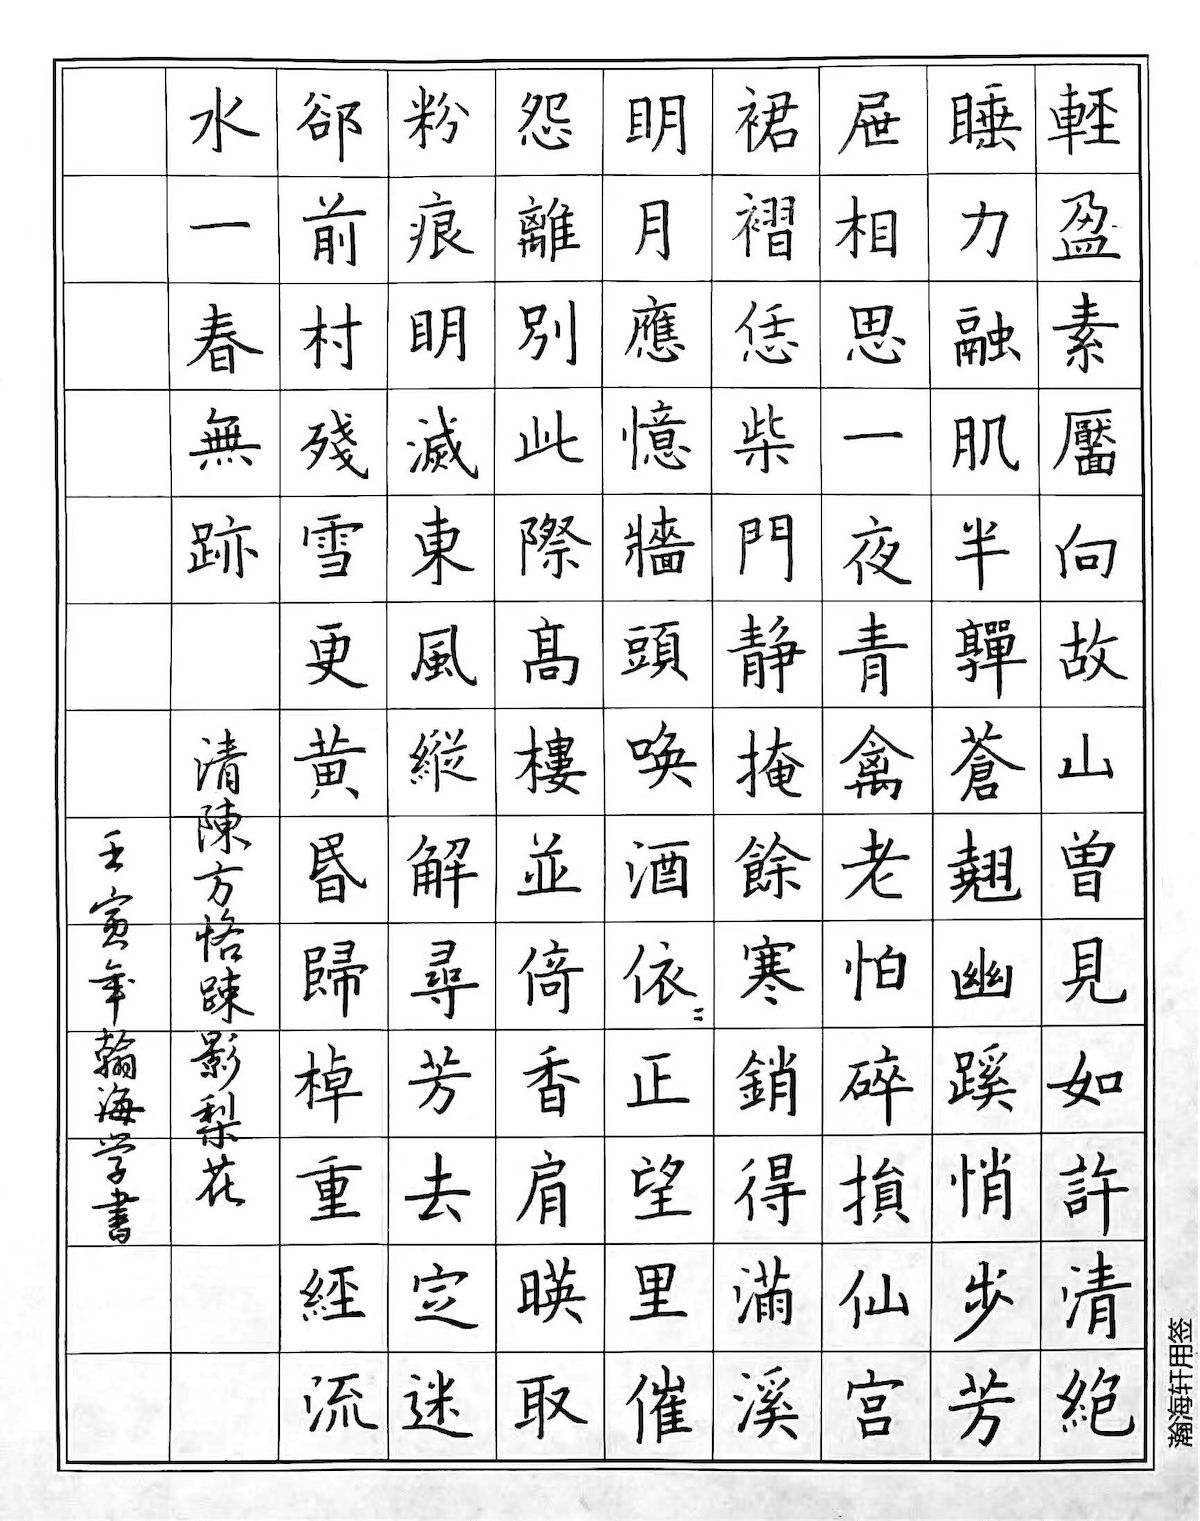 輕盈素靨向故山曽見如許清絕
睡力融肌半嚲蒼翹幽蹊悄步芳
屜相思一夜青禽老怕碎損仙宫
裙褶恁柴門静掩餘寒銷得滿溪
明月應憶牆頭喚酒依〻正望里催
怨離別此際髙樓並倚香肩暎取
粉痕明滅東風縱解尋芳去定迷
郤前村殘雪更黄昏歸棹重經流
水一春無跡
清陳方恪踈影梨花
壬寅年瀚海学書
瀚海轩用签